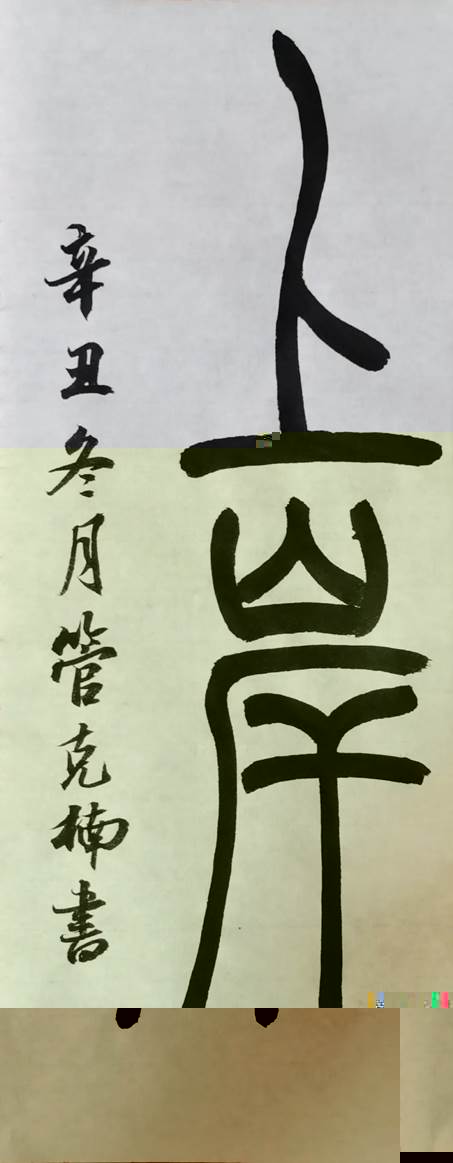 上岸
辛丑冬月管克楠書